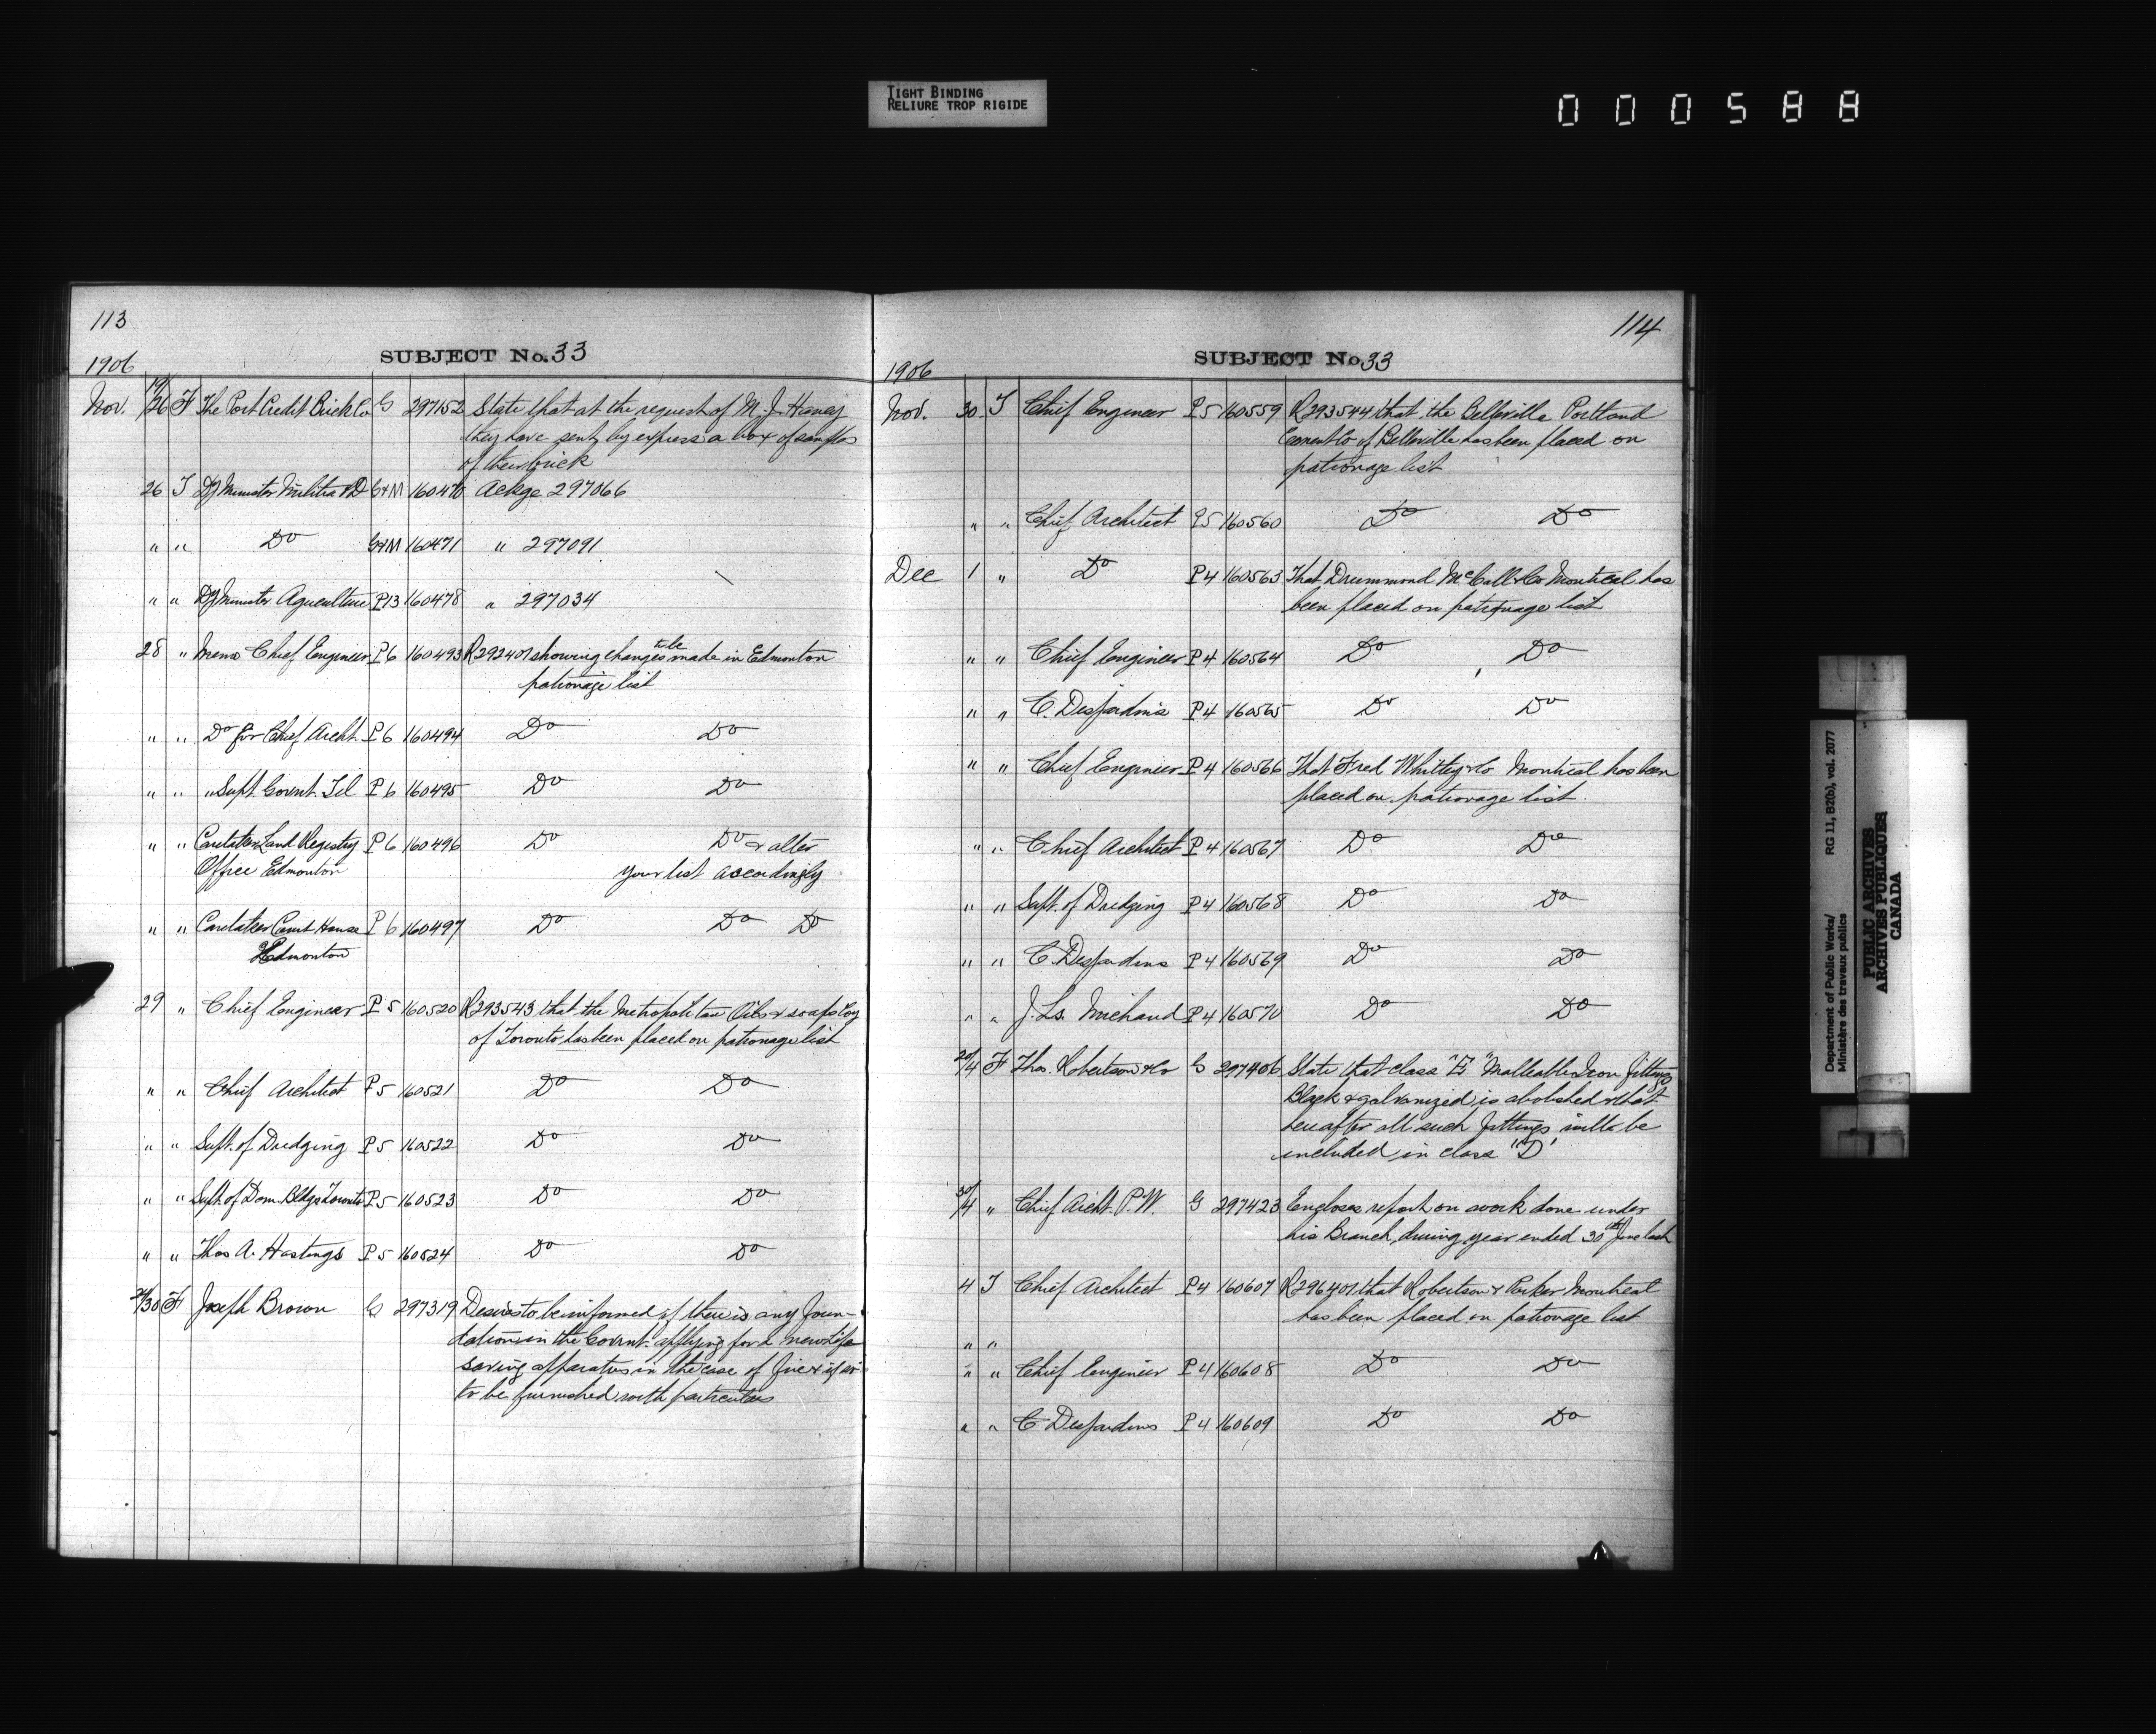 TIGHT BINDING
RELIURE TROP RIGIDE
000588
113
SUBJECT No. 33
1906
Nov. 19/26 F The Port Credit Brick Co G 297152 State that at the request of M. J. Haney
they have sent by express a box of samples
of their brick
26 T Dy Minister Militia & D G&M 160470 Ackge 297066
" " Do G&M 160471 " 297091
" " Dy Minister Agriculture P13 160478 " 297034
28 " Memo Chief Engineer P6 160493 R292401 showing changes to be made in Edmonton
patronage list
" " Do for Chief Archt. P6 160494 Do Do
" " " Supt. Govnt. Tel P6 160495 Do Do
" " Caretaker Land Registry P6 160496 Do Do & alter
Office Edmonton your list accordingly
" " Caretaker Court House P6 160497 Do Do Do
Edmonton
29 " Chief Engineer P5 160520 R293543 that the Metropolitan Oils & soaps Coy
of Toronto has been placed on patronage list
" " Chief Architect P5 160521 Do Do
" " Supt. of Dredging P5 160522 Do Do
" " Supt. of Dom. Bldgs Toronto P5 160523 Do Do
" " Thos A. Hastings P5 160524 Do Do
/30 F Joseph Brown G 297319 Desires to be informed if there is any foun-
dation in the Govrnt. applying for a new Life
saving apparatus in the case of fire & if so
to be furnished with particulars
114
SUBJECT No. 33
1906
Nov. 30 T Chief Engineer P5 160559 R293544 that the Belleville Portland
Cement Co of Belleville has been placed on
patronage list
" " Chief Architect P5 160560 Do Do
Dec 1 " Do P4 160563 That Drummond McCall & Co Montreal has
been placed on patronage list
" " Chief Engineer P4 160564 Do Do
" " C. Desjardins P4 160565 Do Do
" " Chief Engineer P4 160566 That Fred Whitley & Co Montreal has been
placed on patronage list.
" " Chief Architect P4 160567 Do Do
" " Supt. of Dredging P4 160568 Do Do
" " C. Desjardins P4 160569 Do Do
" " J. Ls. Michaud P4 160570 Do Do
/4 F Thos. Robertson & Co G 297406 State that class "E" Malleable Iron fittings
Black & galvanized is abolished & that
hereafter all such fittings will be
included in class "D"
30/4 " Chief Archt. P.W. G 297423 Encloses report on work done under
his Branch, during year ended 30th June last
4 T Chief Architect P4 160607 R296401 that Robertson & Parker Montreal
has been placed on patronage list
" "
" " Chief Engineer P4 160608 Do Do
" " C Desjardins P4 160609 Do Do
Department of Public Works/ RG 11, B2(b), vol. 2077
Ministère des travaux publics
PUBLIC ARCHIVES
ARCHIVES PUBLIQUES
CANADA